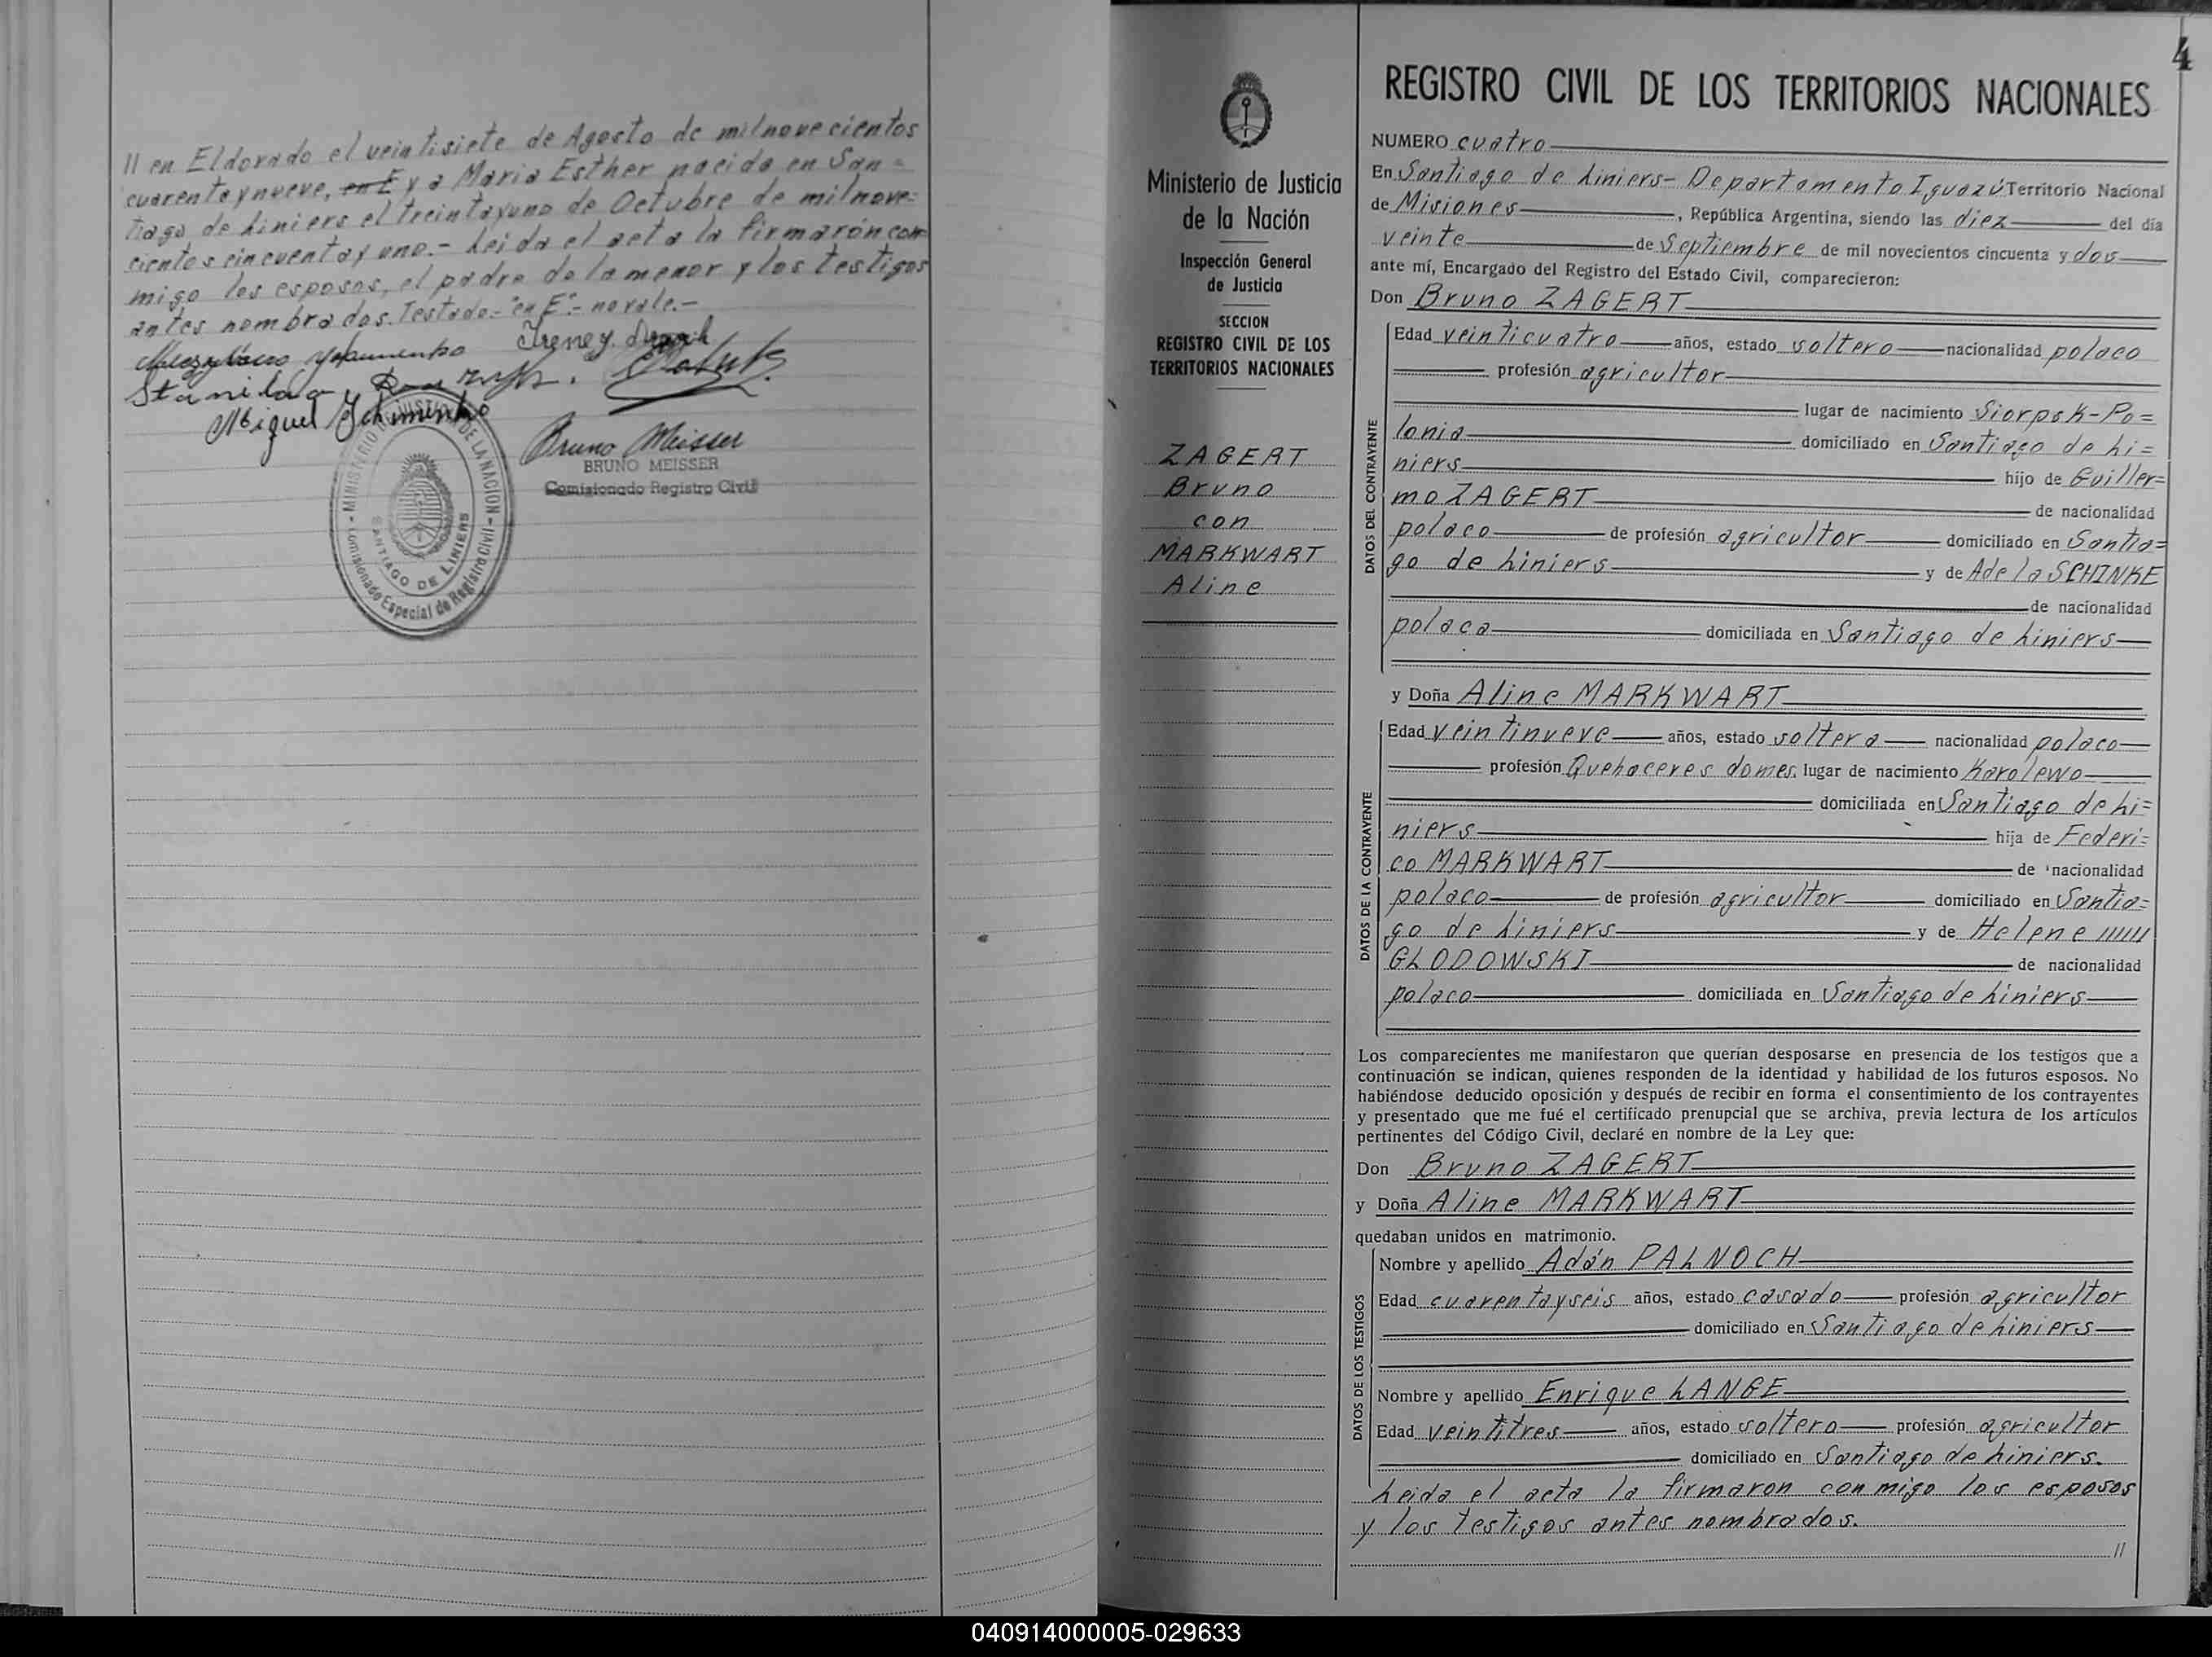 // en Eldorado el veintisiete de Agosto de milnovecientos
cuarentaynueve, en E y a Maria Esther nacida en San=
tiago de Liniers el treintayuno de Octubre de milnove=
cientos cincuentay uno.- Leida el acta la firmarón con=
migo los esposos, el padre de la menor y los testigos
antes nombrados. Testado.- "en E".- no vale.-
Miguel
Bruno Meisser
BRUNO MEISSER
Comisionado Registro Civil
MINISTERIO DE JUSTICIA DE LA NACION
SANTIAGO DE LINIERS
Comisionado Especial de Registro Civil
4
Ministerio de Justicia
de la Nación
Inspección General
de Justicia
SECCION
REGISTRO CIVIL DE LOS
TERRITORIOS NACIONALES
ZAGERT
Bruno
con
MARKWART
Aline
REGISTRO CIVIL DE LOS TERRITORIOS NACIONALES
NUMERO cuatro
En Santiago de Liniers- Departamento Iguazú Territorio Nacional
de Misiones, República Argentina, siendo las diez del día
veinte de Septiembre de mil novecientos cincuenta y dos
ante mí, Encargado del Registro del Estado Civil, comparecieron:
Don Bruno ZAGERT
DATOS DEL CONTRAYENTE
Edad veinticuatro años, estado soltero nacionalidad polaco
profesión agricultor
lugar de nacimiento Siorpsk-Po=
lonia domiciliado en Santiago de Li=
niers hijo de Guiller=
mo ZAGERT de nacionalidad
polaco de profesión agricultor domiciliado en Santia=
go de Liniers y de Adela SCHINKE
de nacionalidad
polaca domiciliada en Santiago de Liniers
y Doña Aline MARKWART
DATOS DE LA CONTRAYENTE
Edad veintinueve años, estado soltera nacionalidad polaco
profesión Quehaceres domes. lugar de nacimiento Karolewo
domiciliada en Santiago de Li=
niers hija de Federi=
co MARKWART de nacionalidad
polaco de profesión agricultor domiciliado en Santia=
go de Liniers y de Helene
GLODOWSKI de nacionalidad
polaco domiciliada en Santiago de Liniers
Los comparecientes me manifestaron que querían desposarse en presencia de los testigos que a
continuación se indican, quienes responden de la identidad y habilidad de los futuros esposos. No
habiéndose deducido oposición y después de recibir en forma el consentimiento de los contrayentes
y presentado que me fué el certificado prenupcial que se archiva, previa lectura de los artículos
pertinentes del Código Civil, declaré en nombre de la Ley que:
Don Bruno ZAGERT
y Doña Aline MARKWART
quedaban unidos en matrimonio.
DATOS DE LOS TESTIGOS
Nombre y apellido Adán PALNOCH
Edad cuarentayseis años, estado casado profesión agricultor
domiciliado en Santiago de Liniers
Nombre y apellido Enrique LANGE
Edad veintitres años, estado soltero profesión agricultor
domiciliado en Santiago de Liniers.
Leida el acta la firmaron conmigo los esposos
y los testigos antes nombrados.
//
040914000005-029633